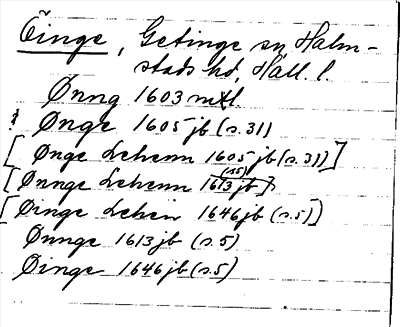 Öinge, Getinge sn, Halm-
stads hd, Hall. l.
Ønng 1603 mtl.
Ønge 1605 jb (s. 31)
[Ønge Lehenn 1605 jb (s. 31)]
[Ønnge Lehenn 1613 jb (s.5)]
[Øinge Lehein 1646 jb (s. 5)]
Ønnge 1613 jb (s. 5)
Øinge 1646 jb (s. 5)